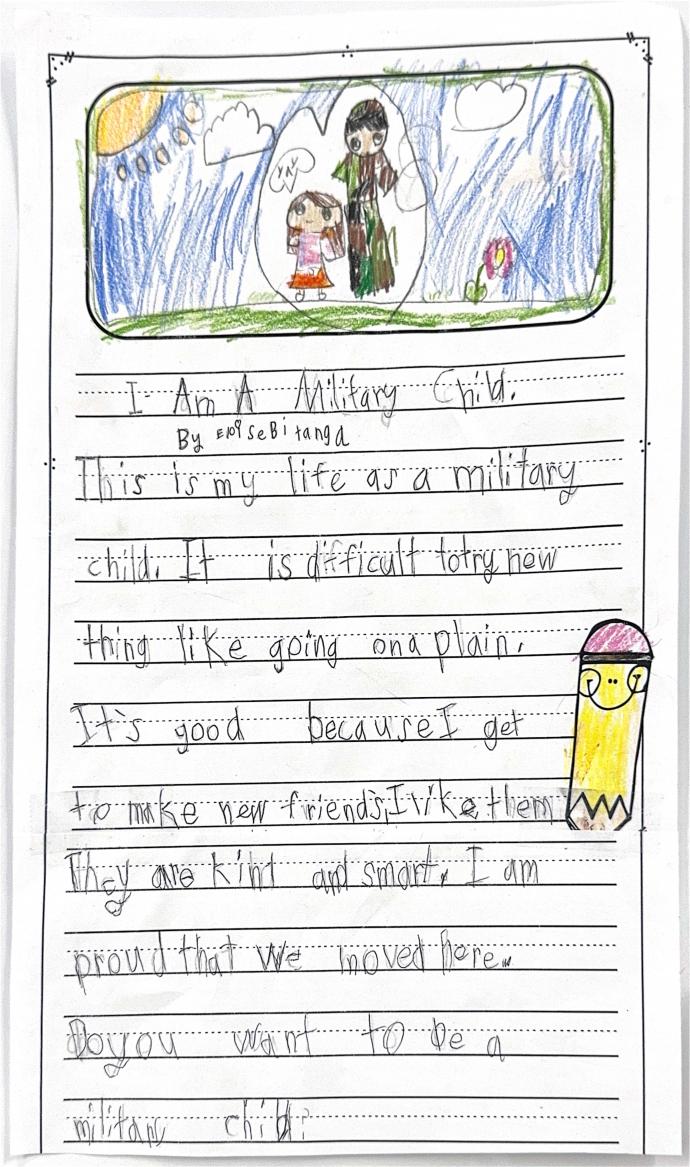 YAY
I Am A Military Child.
By Eloise Bitanga
This is my life as a military
child. It is difficult to try new
thing like going on a plain.
It's good because I get
to make new friends, I like them
They are kint and smart. I am
proud that we moved here.
Do you want to be a
military child?